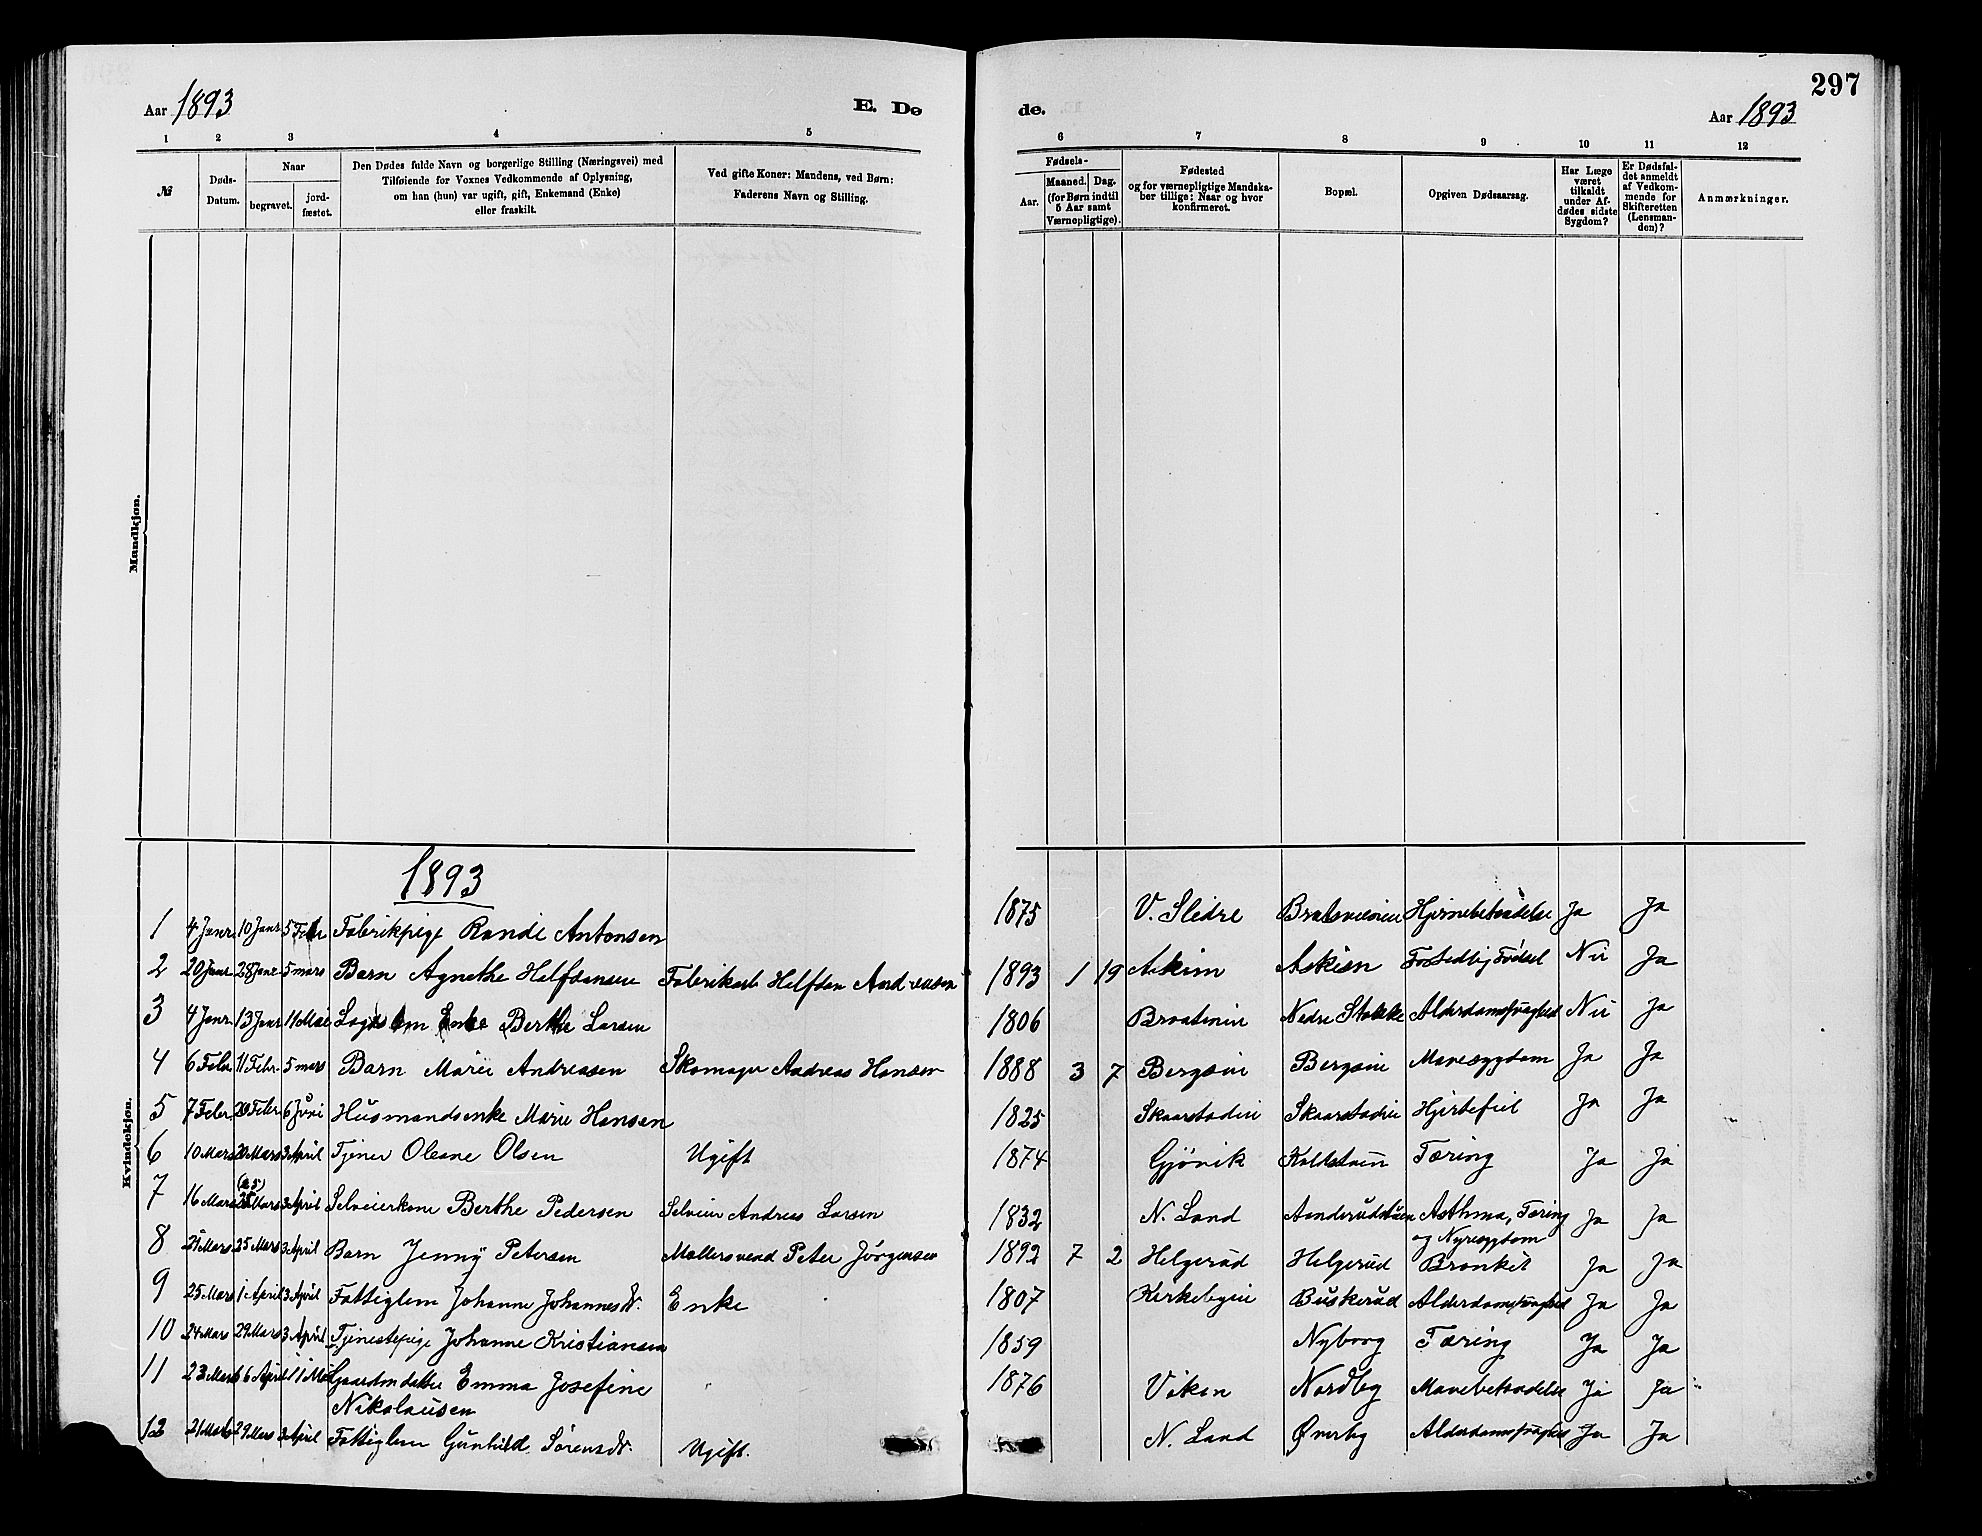 297
Aar 1893
E. Dø
de.
Aar 1893
1 2 3 4 5 6 7 8 9 10 11 12
№
Døds-
Datum.
Naar
begravet.
jord-
fæstet.
Den Dødes fulde Navn og borgerlige Stilling (Næringsvei) med
Tilføiende for Voxnes Vedkommende af Oplysning,
om han (hun) var ugift, gift, Enkemand (Enke)
eller fraskilt.
Ved gifte Koner: Mandens, ved Børn:
Faderens Navn og Stilling.
Fødsels-
Aar.
Maaned. Dag.
(for Børn indtil
5 Aar samt
Værnepligtige).
Fødested
og for værnepligtige Mandska-
ber tillige: Naar og hvor
konfirmeret.
Bopæl.
Opgiven Dødsaarsag.
Har Læge
været
tilkaldt
under Af-
dødes sidste
Sygdom?
Er Dødsfal-
det anmeldt
af Vedkom-
mende for
Skifteretten
(Lensman-
den)?
Anmærkninger.
Mandkjøn.
Kvindekjøn.
1893
1 4 Janr 10 Janr 5 Febr Fabrikpige Randi Antonsen 1875 V. Slidre Hjernebetændelse Ja Ja
2 20 Janr 28 Janr 5 mars Barn Agnethe Halfdansen Fabrikarb Halfdan Andreasen 1893 1 19 Askim Askim Nei Ja
3 4 Janr 13 Janr 11 Mai Enke Berthe Larsen 1806 Braatenin Nedre Stokke Alderdomssvaghed Nei Ja
4 6 Febr 11 Febr 5 mars Barn Marie Andreasen Skomager Andreas Hansen 1888 3 7 Bergsvei Bergsvei Mavesygdom Ja Ja
5 7 Febr 20 Febr 6 Juni Husmandsenke Marie Hansen 1825 Skaarstadeie Skaarstadeie Hjertefeil Ja Ja
6 10 Mars 20 Mars 3 April Tjener Oleane Olsen Ugift 1874 Gjøvik Kaldstuen Tæring Ja Ja
7 16 Mars (25) Mars 3 April Selveierkone Berthe Pedersen Selveier Andreas Larsen 1832 N. Land Asthma, Tæring Ja Ja
og Nyresygdom
8 21 Mars 25 Mars 3 April Barn Jenny Petersen Møllersvend Peter Jørgensen 1892 7 2 Helgerud Helgerud Bronkit Ja Ja
9 25 Mars 1 April 3 April Fattiglem Johanne Johannesdr. Enke 1807 Kirkebyeie Buskerud Alderdomssvaghed Ja Ja
10 24 Mars 29 Mars 3 April Tjenestepige Johanne Kristiansen 1859 Nyborg Tæring Ja Ja
11 23 Mars 6 April 11 Mai Gaardmdatter Emma Josefine 1876 Viken Nordby Mavebetændelse Ja Ja
Nikolausen
12 21 Mars 29 Mars 3 April Fattiglem Gunhild Sørensdr. Ugift. N. Land Øverby Alderdomssvaghed Ja Ja